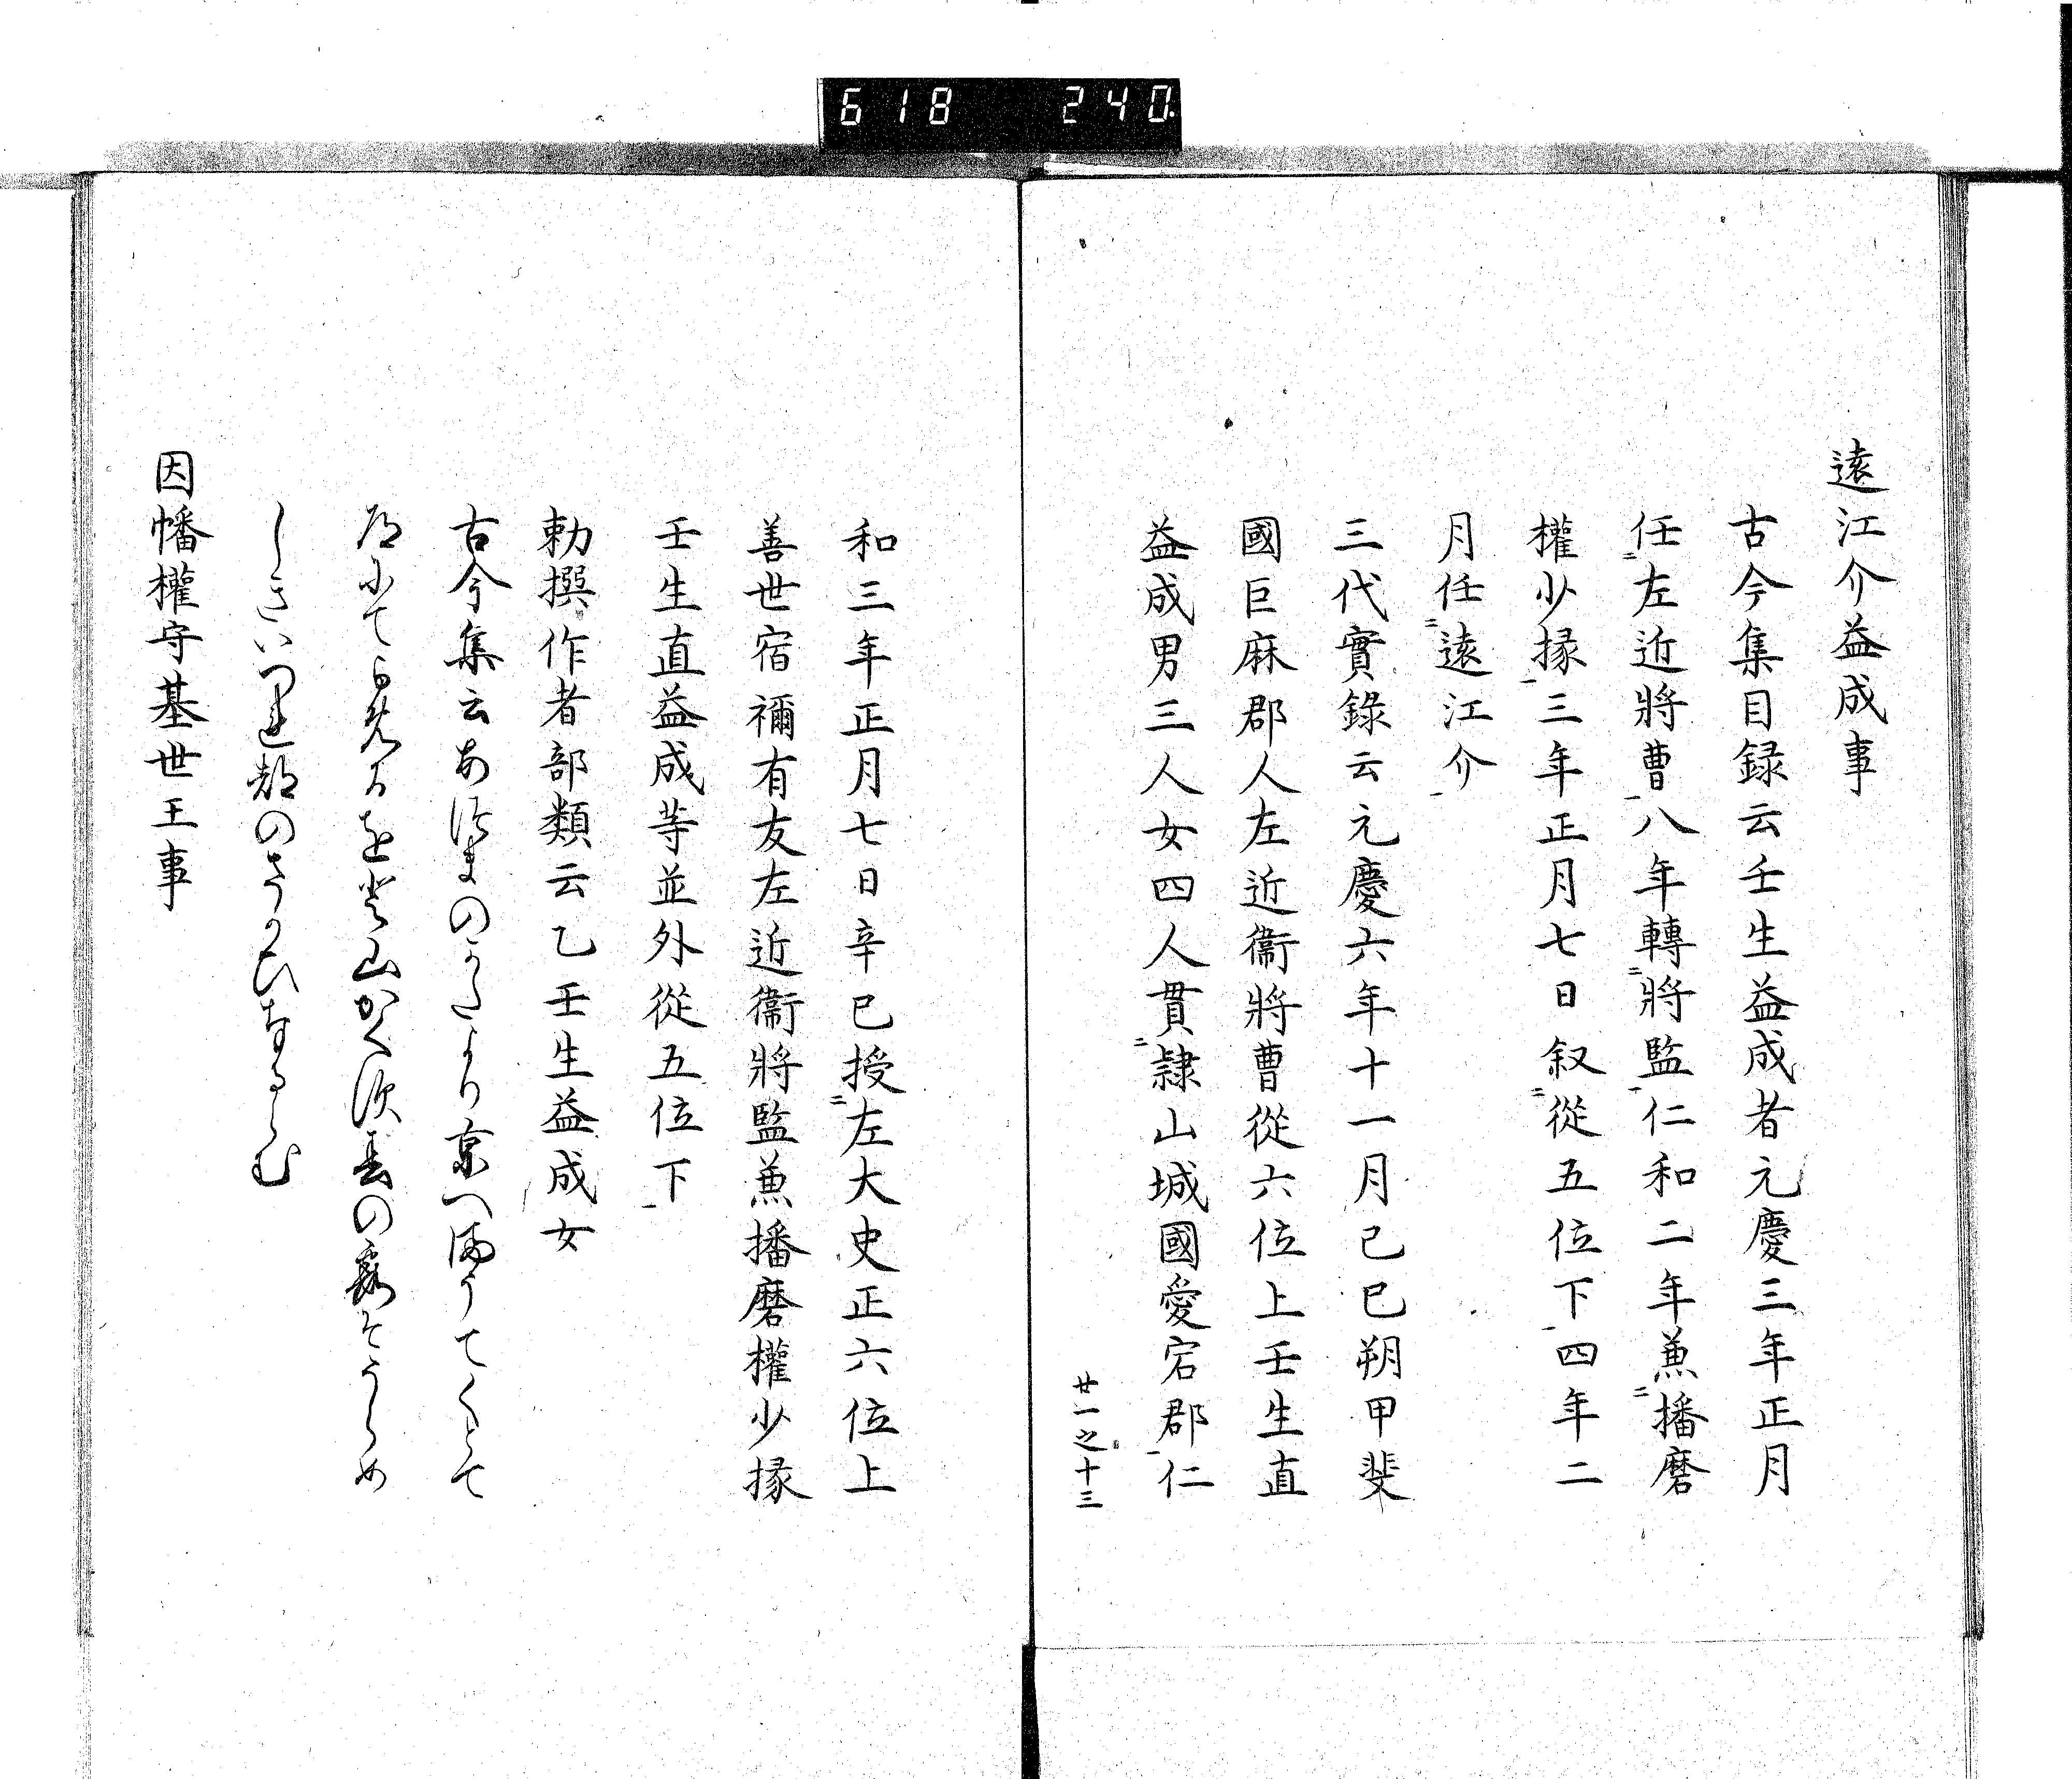 618 240
遠江介益成事
古今集目録云壬生益成者元慶三年正月
任二左近將曹一八年轉二將監一仁和二年兼二播磨
權少掾一三年正月七日叙二從五位下一四年二
月任二遠江介一
三代實錄云元慶六年十一月己巳朔甲斐
國巨麻郡人左近衞將曹從六位上壬生直
益成男三人女四人貫二隷山城國愛宕郡一仁
廿一之十三
和三年正月七日辛巳授二左大史正六位上
善世宿禰有友左近衞將監兼播磨權少掾
壬生直益成等並外從五位下一
勅撰作者部類云乙壬生益成女
古今集云あつまのかたより京へまうてくとて
道にてよめる をと 山かくす春の霞そうらめ
しきいつれ都のさかひなるらむ
因幡權守基世王事